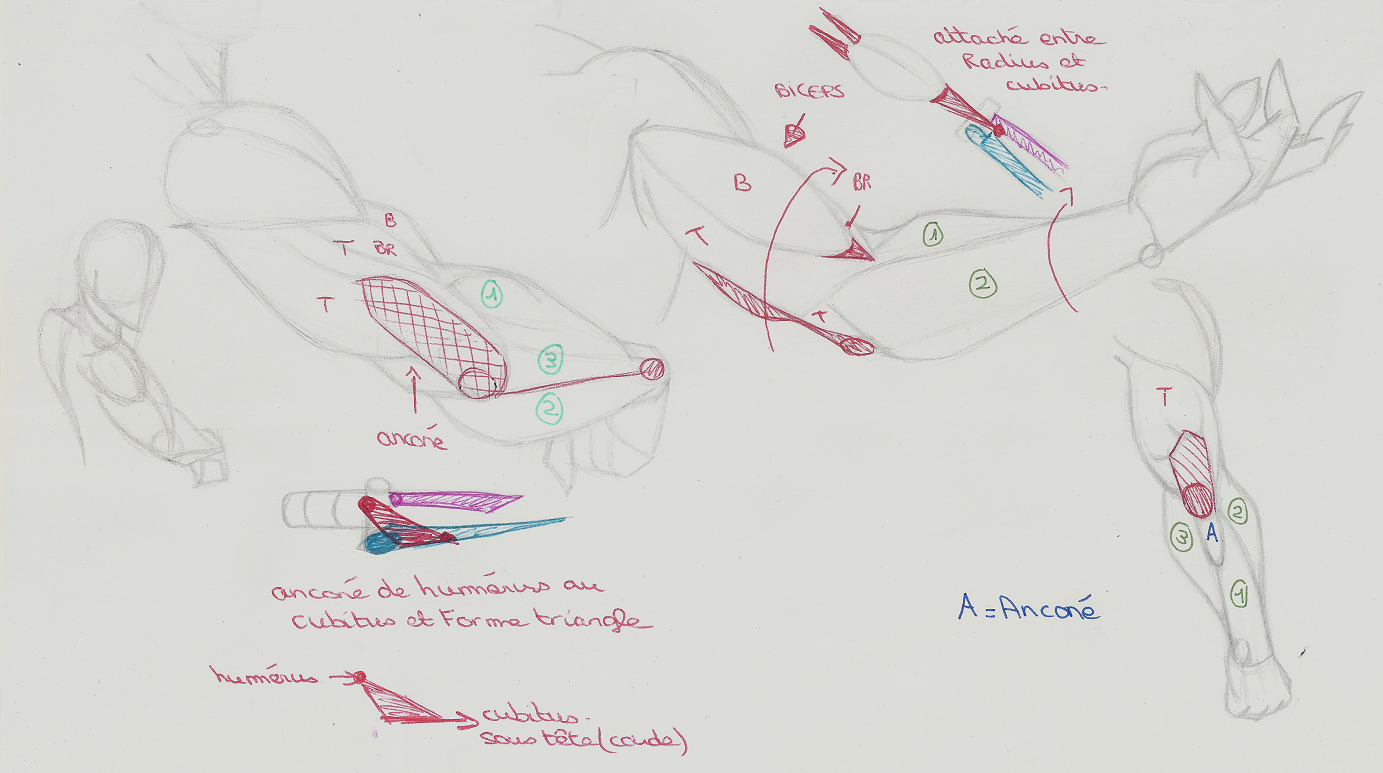 attaché entre
Radius et
cubitus.
BiCEPS
B
BR
T
T
1
2
B
T BR
T
1
3
2
anconé
T
2
3
A
1
anconé de humérus au
cubitus et Forme triangle
A = Anconé
humérus
cubitus.
sous tête (coude)